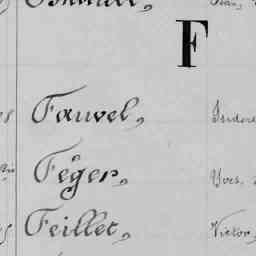 F
Fauvel, Isidore
Féger, Yves,
Feillet, Victor,